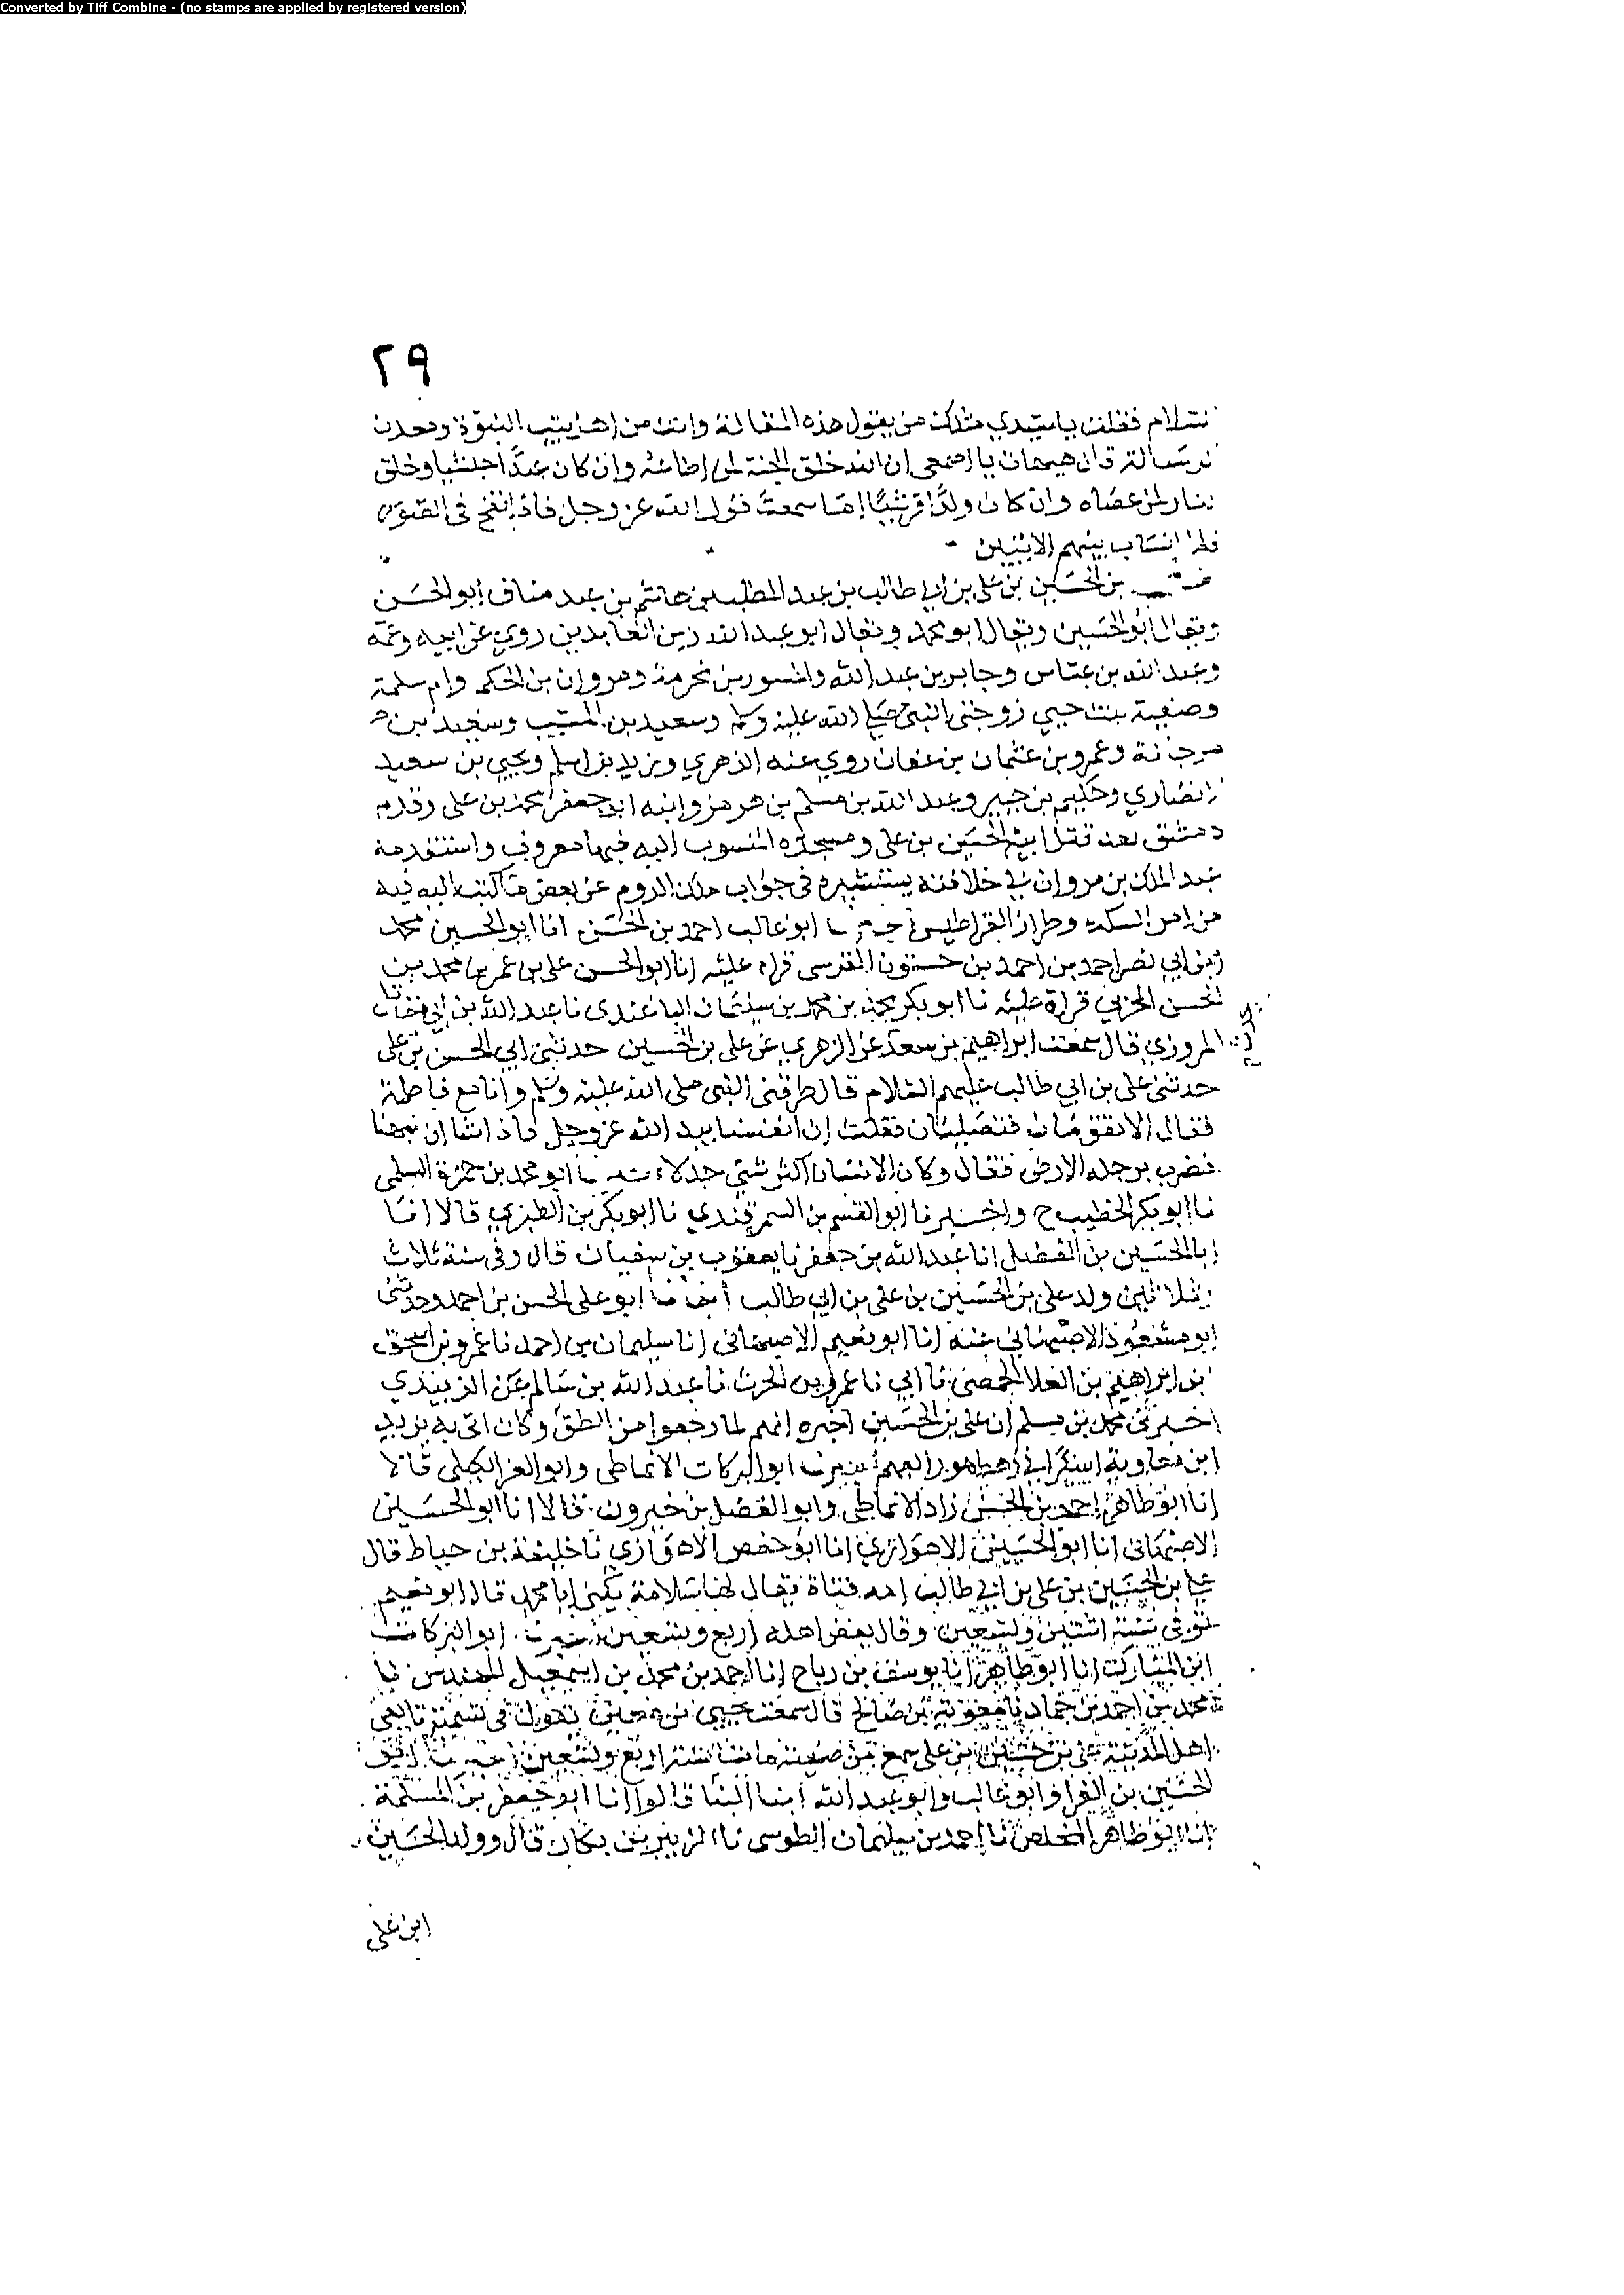 Converted by Tiff Combine - (no stamps are applied by registered version)
٢٩
السلام فقلت يا سيدي مثلك من يقول هذه المقالة وانت من اهل بيت النبوة ومعدن
الرسالة قال هيهات يا اصمعي ان الله خلق الجنة لمن اطاعه وان كان عبدا حبشيا وخلق
النار لمن عصاه وان كان ولدا قرشيا اما سمعت قول الله عز وجل فاذا نفخ في الصور
فلا انساب بينهم الايتين
علي بن الحسين بن علي بن ابي طالب بن عبد المطلب بن هاشم بن عبد مناف ابو الحسن
ويقال ابو الحسين ويقال ابو محمد ويقال ابو عبد الله زين العابدين روي عن ابيه وعمه
وعبد الله بن عباس وجابر بن عبد الله والمسور بن مخرمة ومروان بن الحكم وام سلمة
وصفية بنت حيي زوجتي النبي صلى الله عليه وسلم وسعيد بن المسيب وسعيد بن
مرجانة وعمرو بن عثمان بن عفان روي عنه الزهري وزيد بن اسلم ويحيي بن سعيد
الانصاري وحكيم بن جبير وعبد الله بن مسلم بن هرمز وابنه ابو جعفر محمد بن علي وقدم
دمشق بعد قتل ابيه الحسين بن علي ومسجده المنسوب اليه فيها معروف واستقدمه
عبد الملك بن مروان في خلافته يستشيره في جواب ملك الروم عن بعض ما كتب اليه فيه
من امر السكة وطراز القراطيس ابو غالب احمد بن الحسن انا ابو الحسين محمد
بن ابي نصر احمد بن احمد بن حسنون النرسي قراه عليه انا ابو الحسن علي بن عمر بن محمد بن
الحسن الحربي قراة عليه نا ابو بكر محمد بن محمد بن سليمان الباغندي نا عبد الله بن
المروزي قال سمعت ابراهيم بن سعد عن الزهري عن علي بن الحسين حدثني ابي الحسين بن علي
حدثني علي بن ابي طالب عليهم السلام قال طرقني النبي صلى الله عليه وسلم وانا مع فاطمة
فقال الا تقومان فتصليان فقلت ان انفسنا بيد الله عز وجل فاذا شا ان نبهنا
فضرب برجله الارض فقال وكان الانسان اكثر شي جدلا ابو محمد بن حمزة السلمي
نا ابو بكر الخطيب ح واخبرنا ابو القسم بن السمرقندي نا ابو بكر بن الطبري قالا انا
ابو الحسين بن الفضل انا عبد الله بن جعفر نا يعقوب بن سفيان قال وفي سنة ثلاث
وثلاثين ولد علي بن الحسين بن علي بن ابي طالب ابو علي الحسن بن احمد وحدثني
ابو مسعود الاصبهاني عنه انا ابو نعيم الاصبهاني انا سليمان بن احمد نا عمرو بن اسحق
بن ابراهيم بن العلا الحمصي نا ابي نا عمرو بن الحرث نا عبد الله بن سالم عن الزبيدي
اخبرني محمد بن مسلم ان علي بن الحسين اخبره انهم لما رجعوا من الطف وكان اتي به يزيد
ابن معاوية ابو البركات الانماطي وابو العز الكيلي قالا
انا ابو طاهر احمد بن الحسن زاد الانماطي وابو الفضل بن خيرون قالا انا ابو الحسين
الاصبهاني انا ابو الحسين الاهوازي انا ابو حفص الاهوازي نا خليفة بن خياط قال
علي بن الحسين بن علي بن ابي طالب امه فتاة يقال لها سلامة يكني ابا محمد قال ابو نعيم
توفي سنة اثنتين وتسعين وقال بعض اهله اربع وتسعين ابو البركات
ابن المبارك انا ابو طاهر انا يوسف بن رباح انا احمد بن محمد بن اسمعيل المهندس نا
محمد بن احمد بن حماد نا معوية بن صالح قال سمعت يحيي بن معين يقول في تسمية تابعي
اهل المدينة علي بن حسين بن علي سمع من صفية مات سنة اربع وتسعين
الحسين بن الفرا وابو غالب وابو عبد الله ابنا البنا قالوا انا ابو جعفر بن المسلمة
انا ابو طاهر المخلص نا احمد بن سليمان الطوسي نا الزبير بن بكار قال وولد الحسين
ابن علي